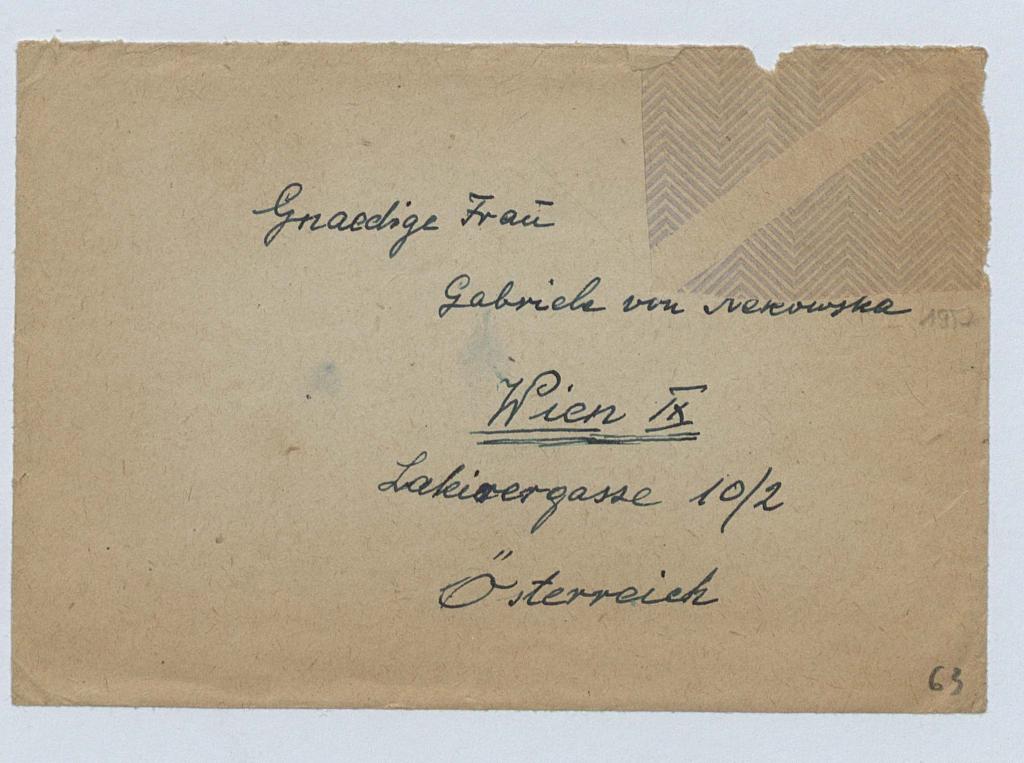 Gnaedige Frau
Gabriele von Nekowska
Wien IX
Lakierergasse 10/2
Österreich
63